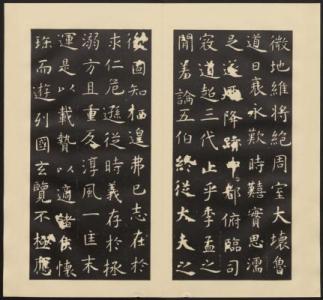 微地維將絕周室大壞魯
道日衰永歎時艱實思濡
足遂乃降跡中都俯臨司
寇道超三代止乎季孟之
閒羞論五伯終從大夫之
後固知栖遑弗已志在於
求仁危遜從時義存於拯
溺方且重反淳風一匡末
運是以載贄以適諸侯懷
珎而遊列國玄覽不極應